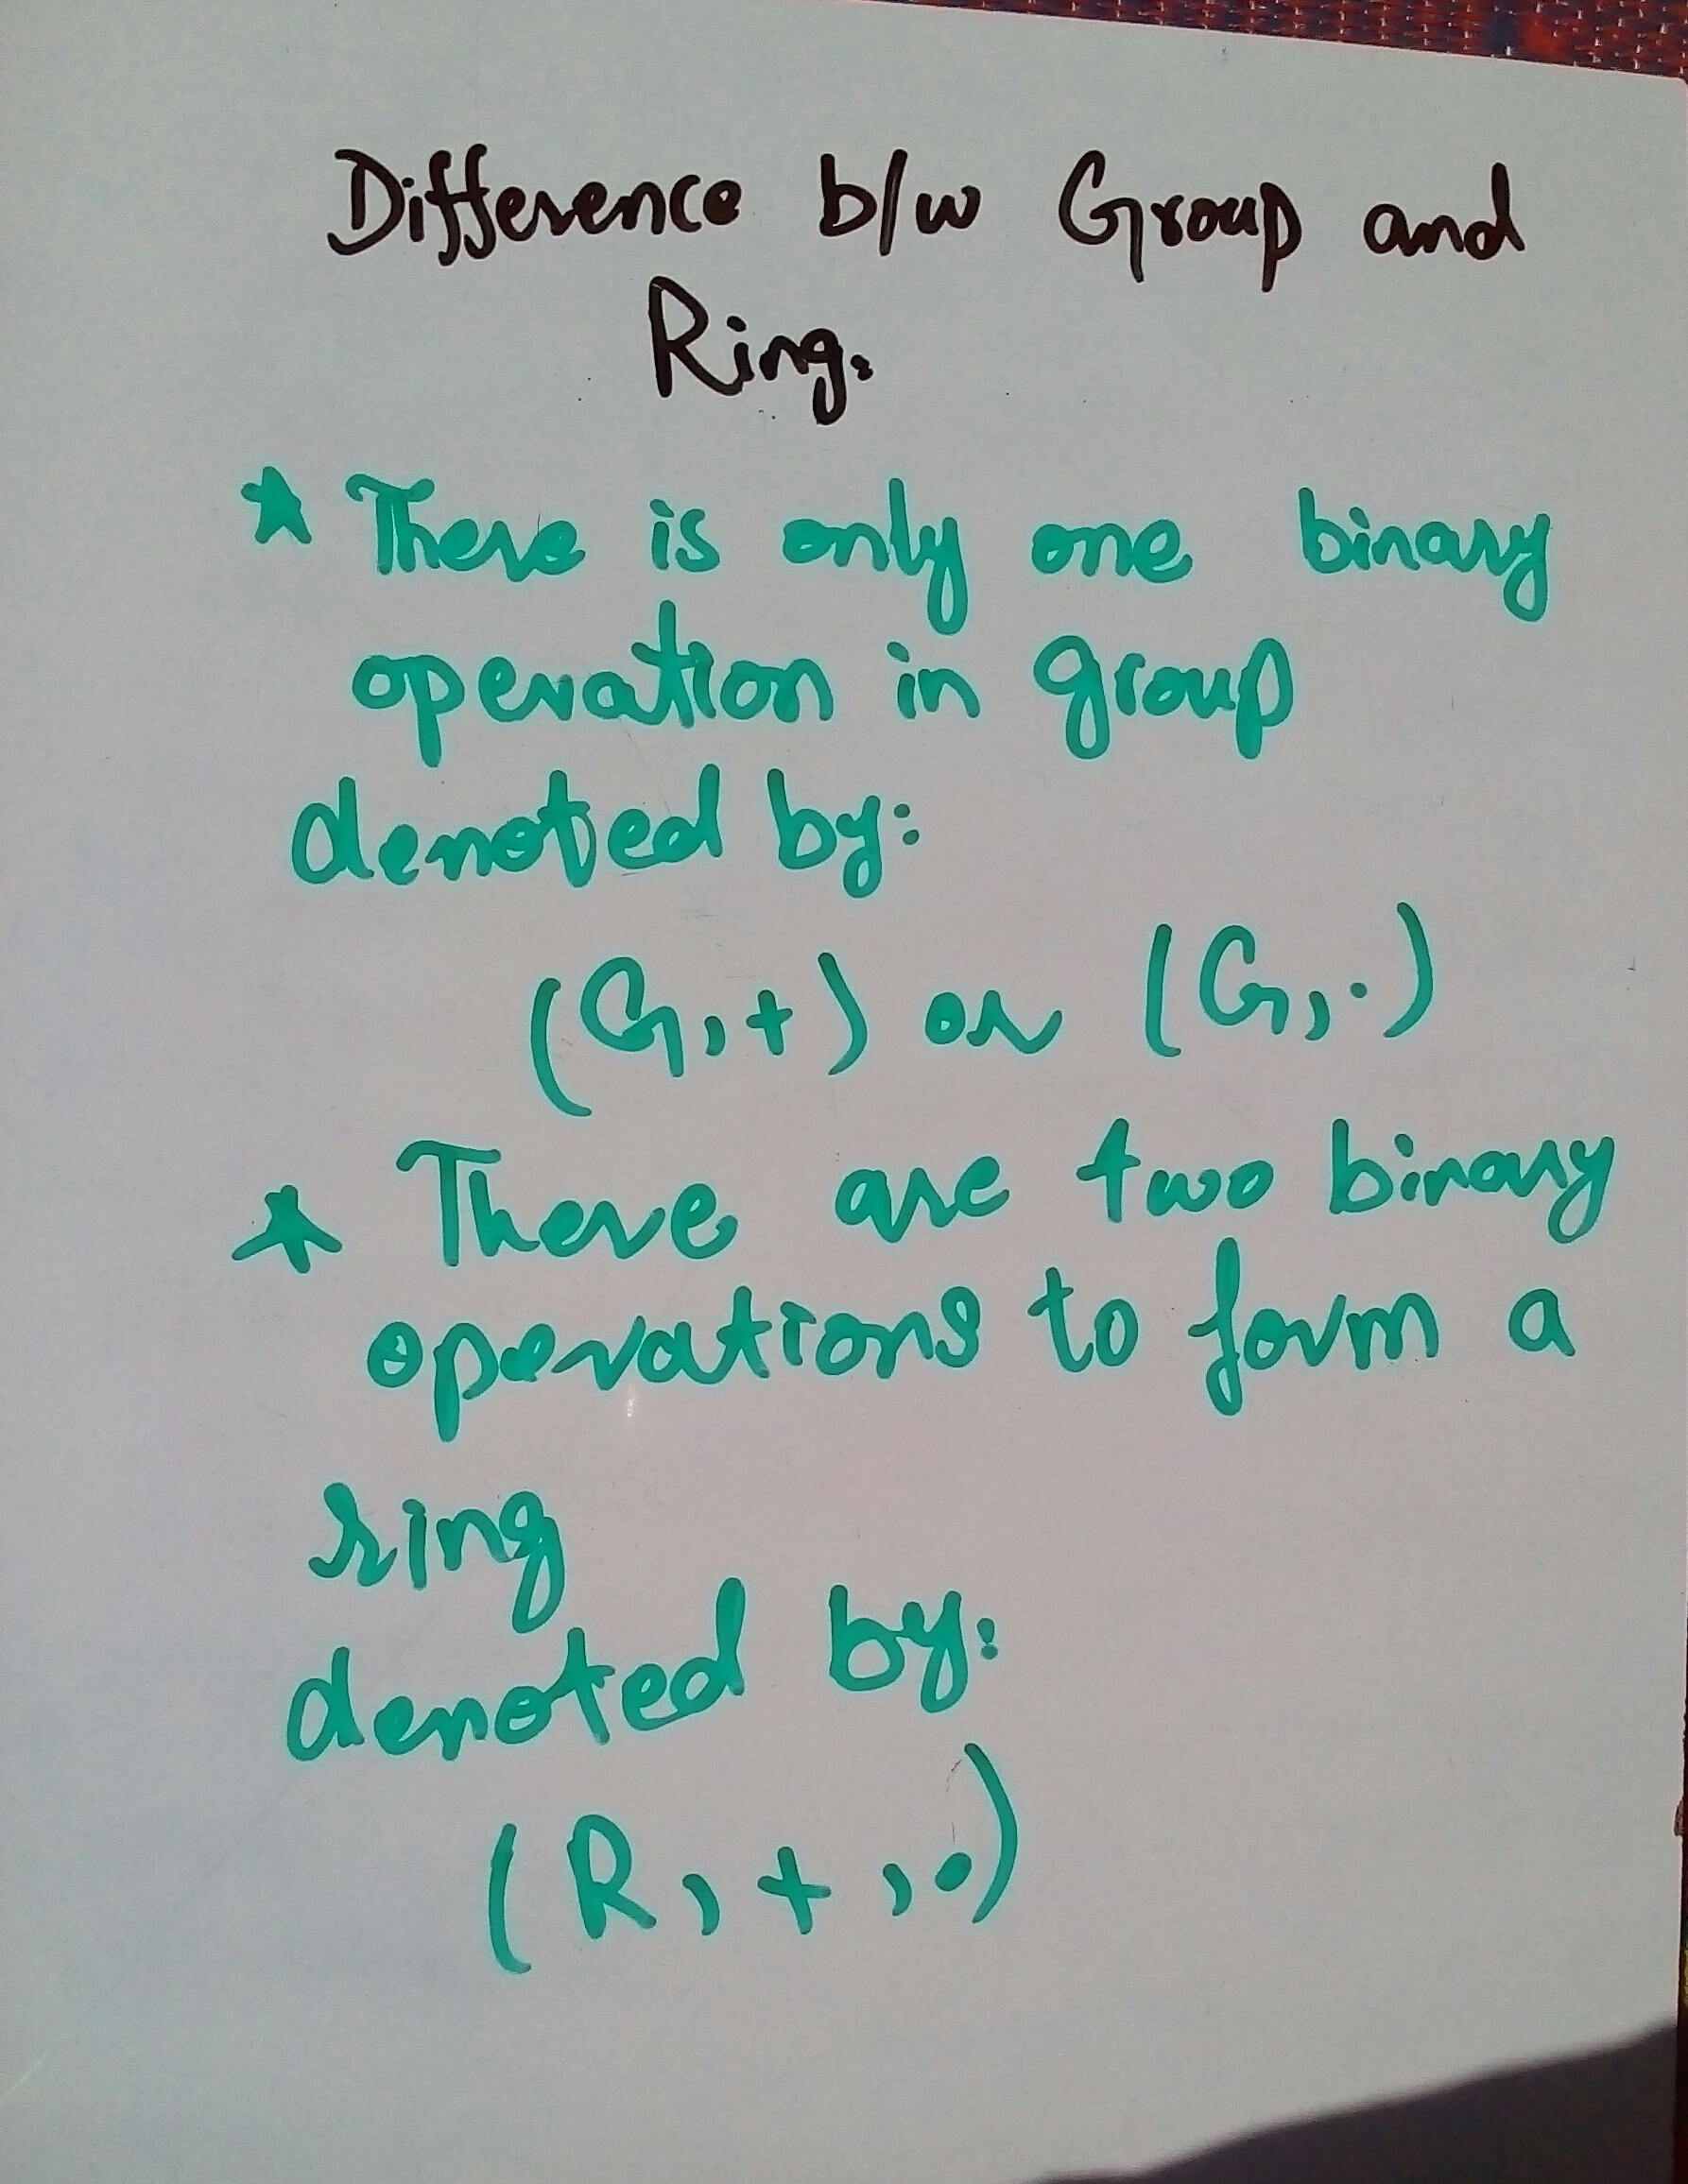 Difference b/w Group and
Ring.
* There is only one binary
operation in group
denoted by:
(G,+) or (G,.)
* There are two binary
operations to form a
ring
denoted by:
(R,+,.)